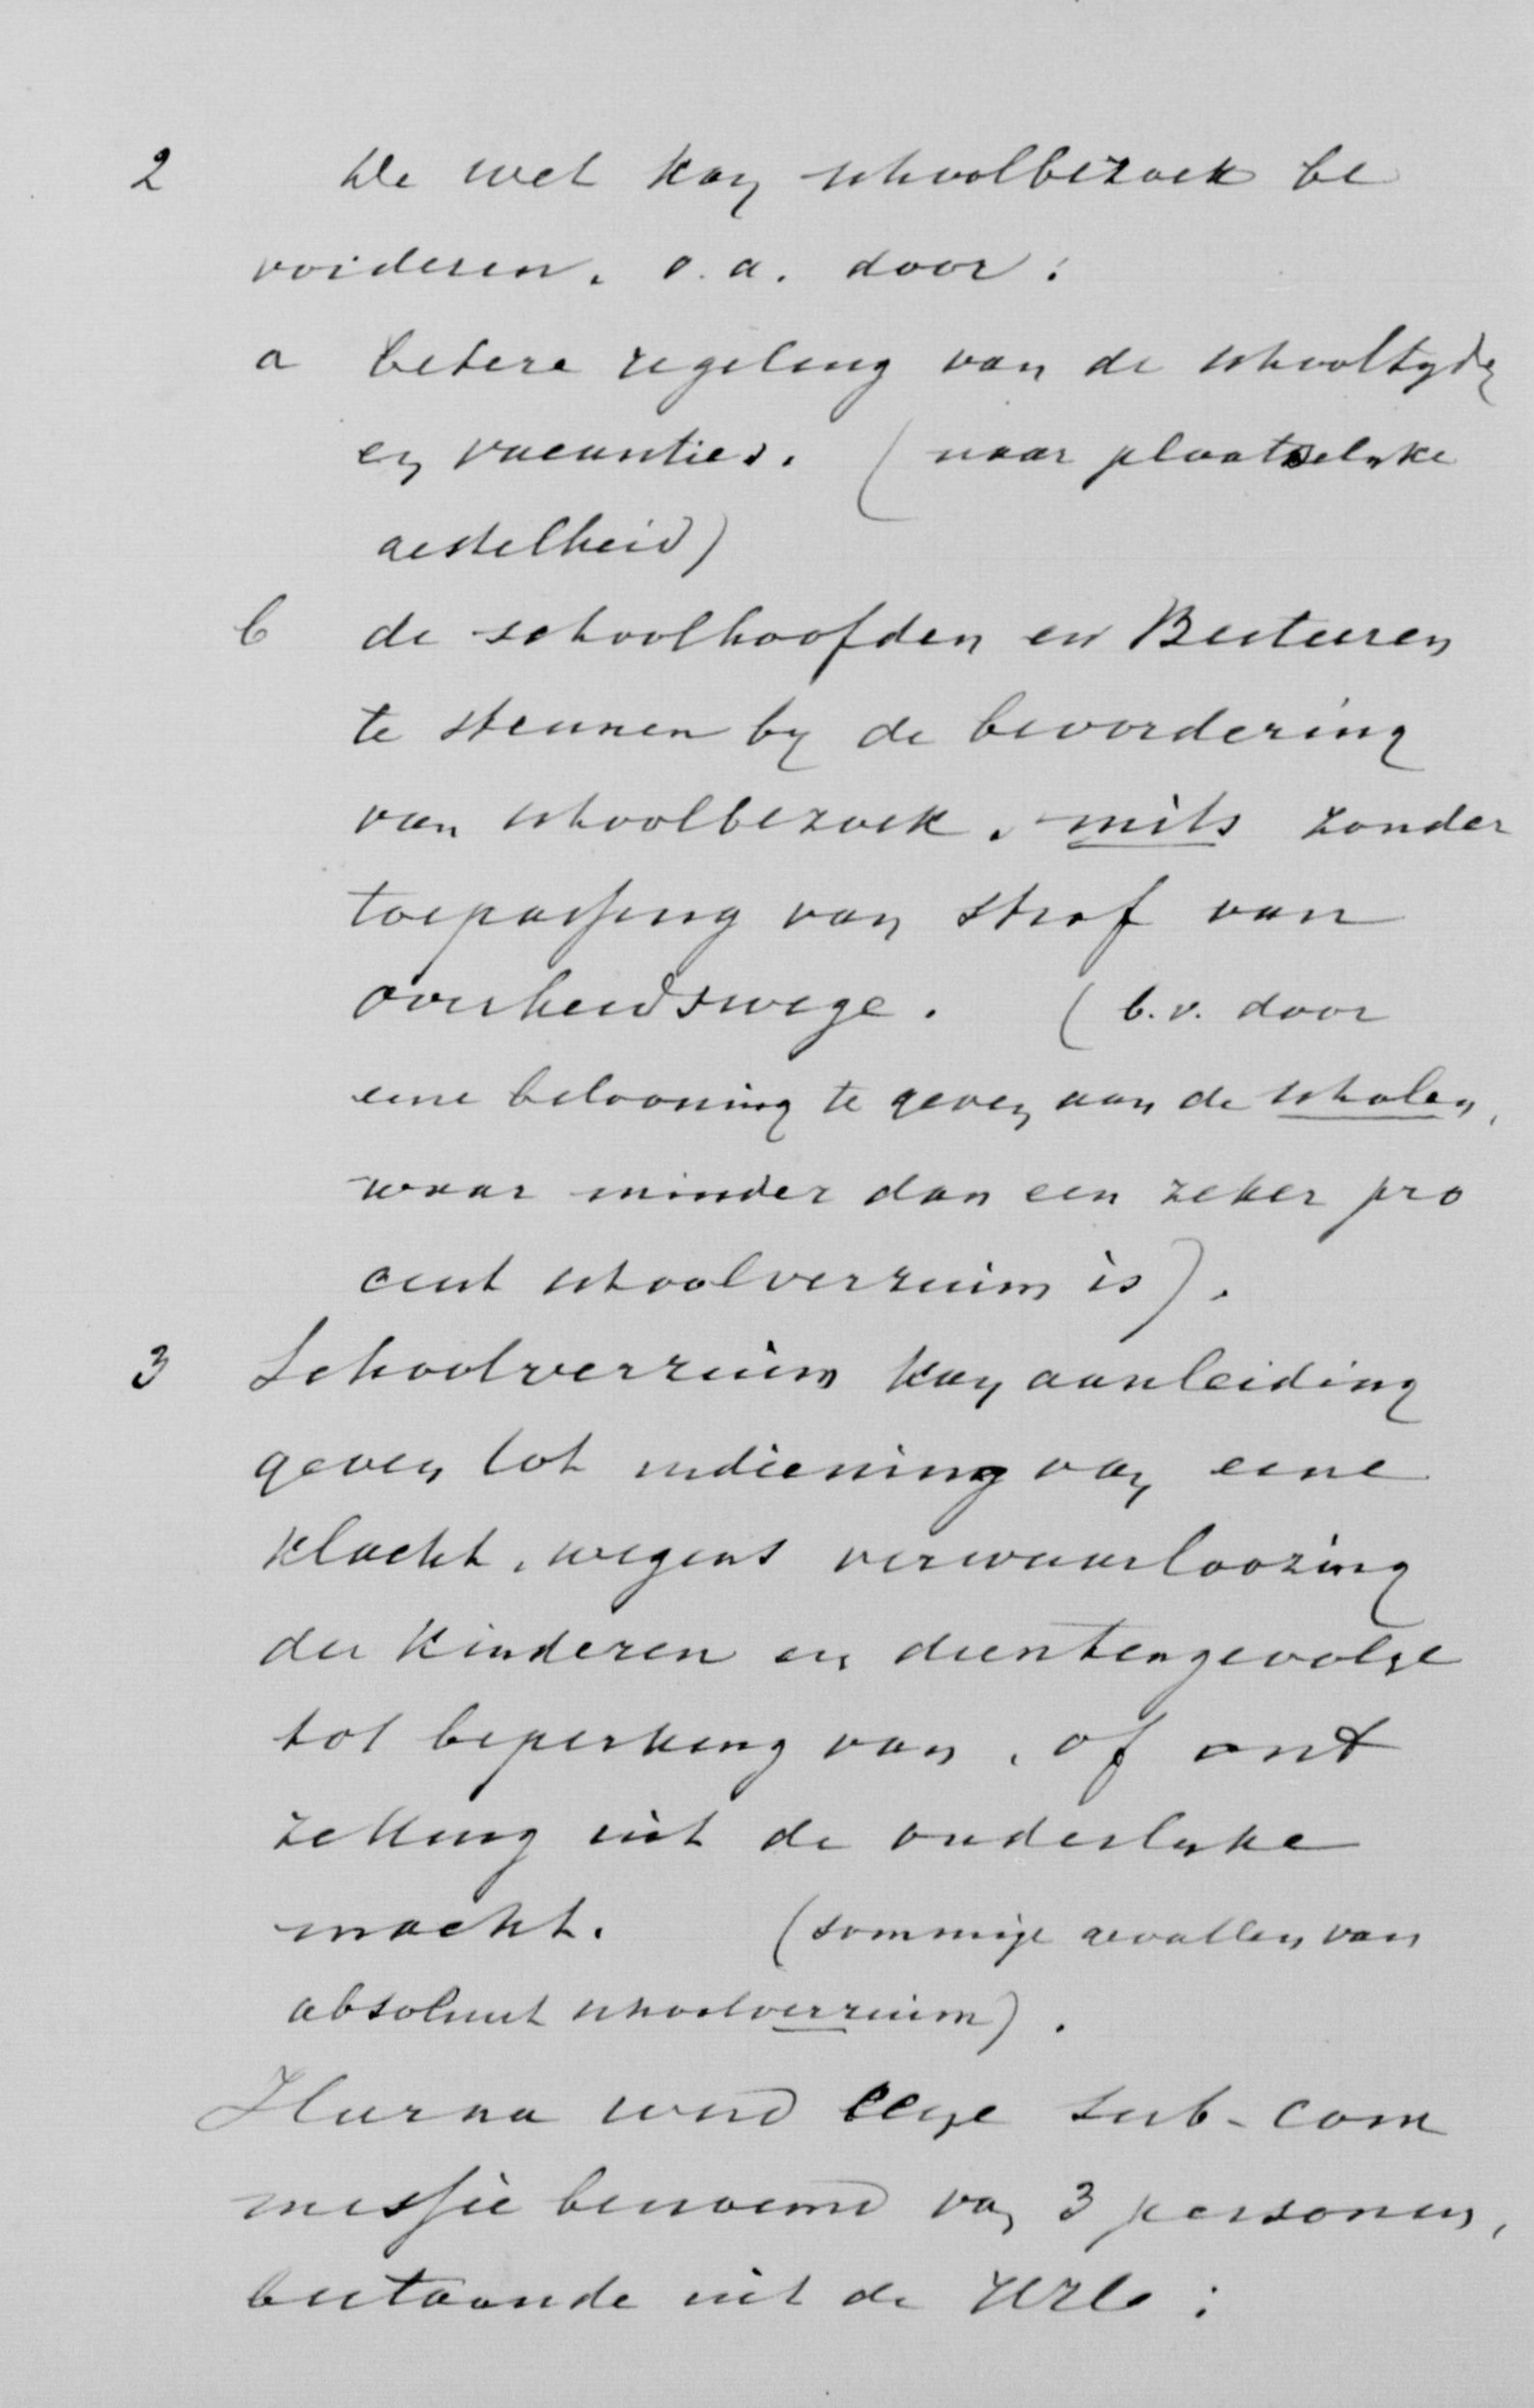 2 De wet kan schoolbezoek be
vorderen, o.a. door:
a betere regeling van de schooltyden
en vacanties. (naar plaatselyke
gestelheid)
b de schoolhoofden en Besturen
te steunen by de bevordering
van schoolbezoek, mits zonder
toepassing van straf van
overheidswege. (b.v. door
eene belooning te geven aan de scholen,
waar minder dan een zeker pro
cent schoolverzuim is).
3 Schoolverzuim kan aanleiding
geven tot indiening van eene
klacht, wegens verwaarloozing
der kinderen en dientengevolge
tot beperking van, of ont
zetting uit de ouderlyke
macht. (sommige gevallen van
absoluut schoolverzuim).
Hierna werd eene sub-com
missie benoemd van 3 personen,
bestaande uit de HH: